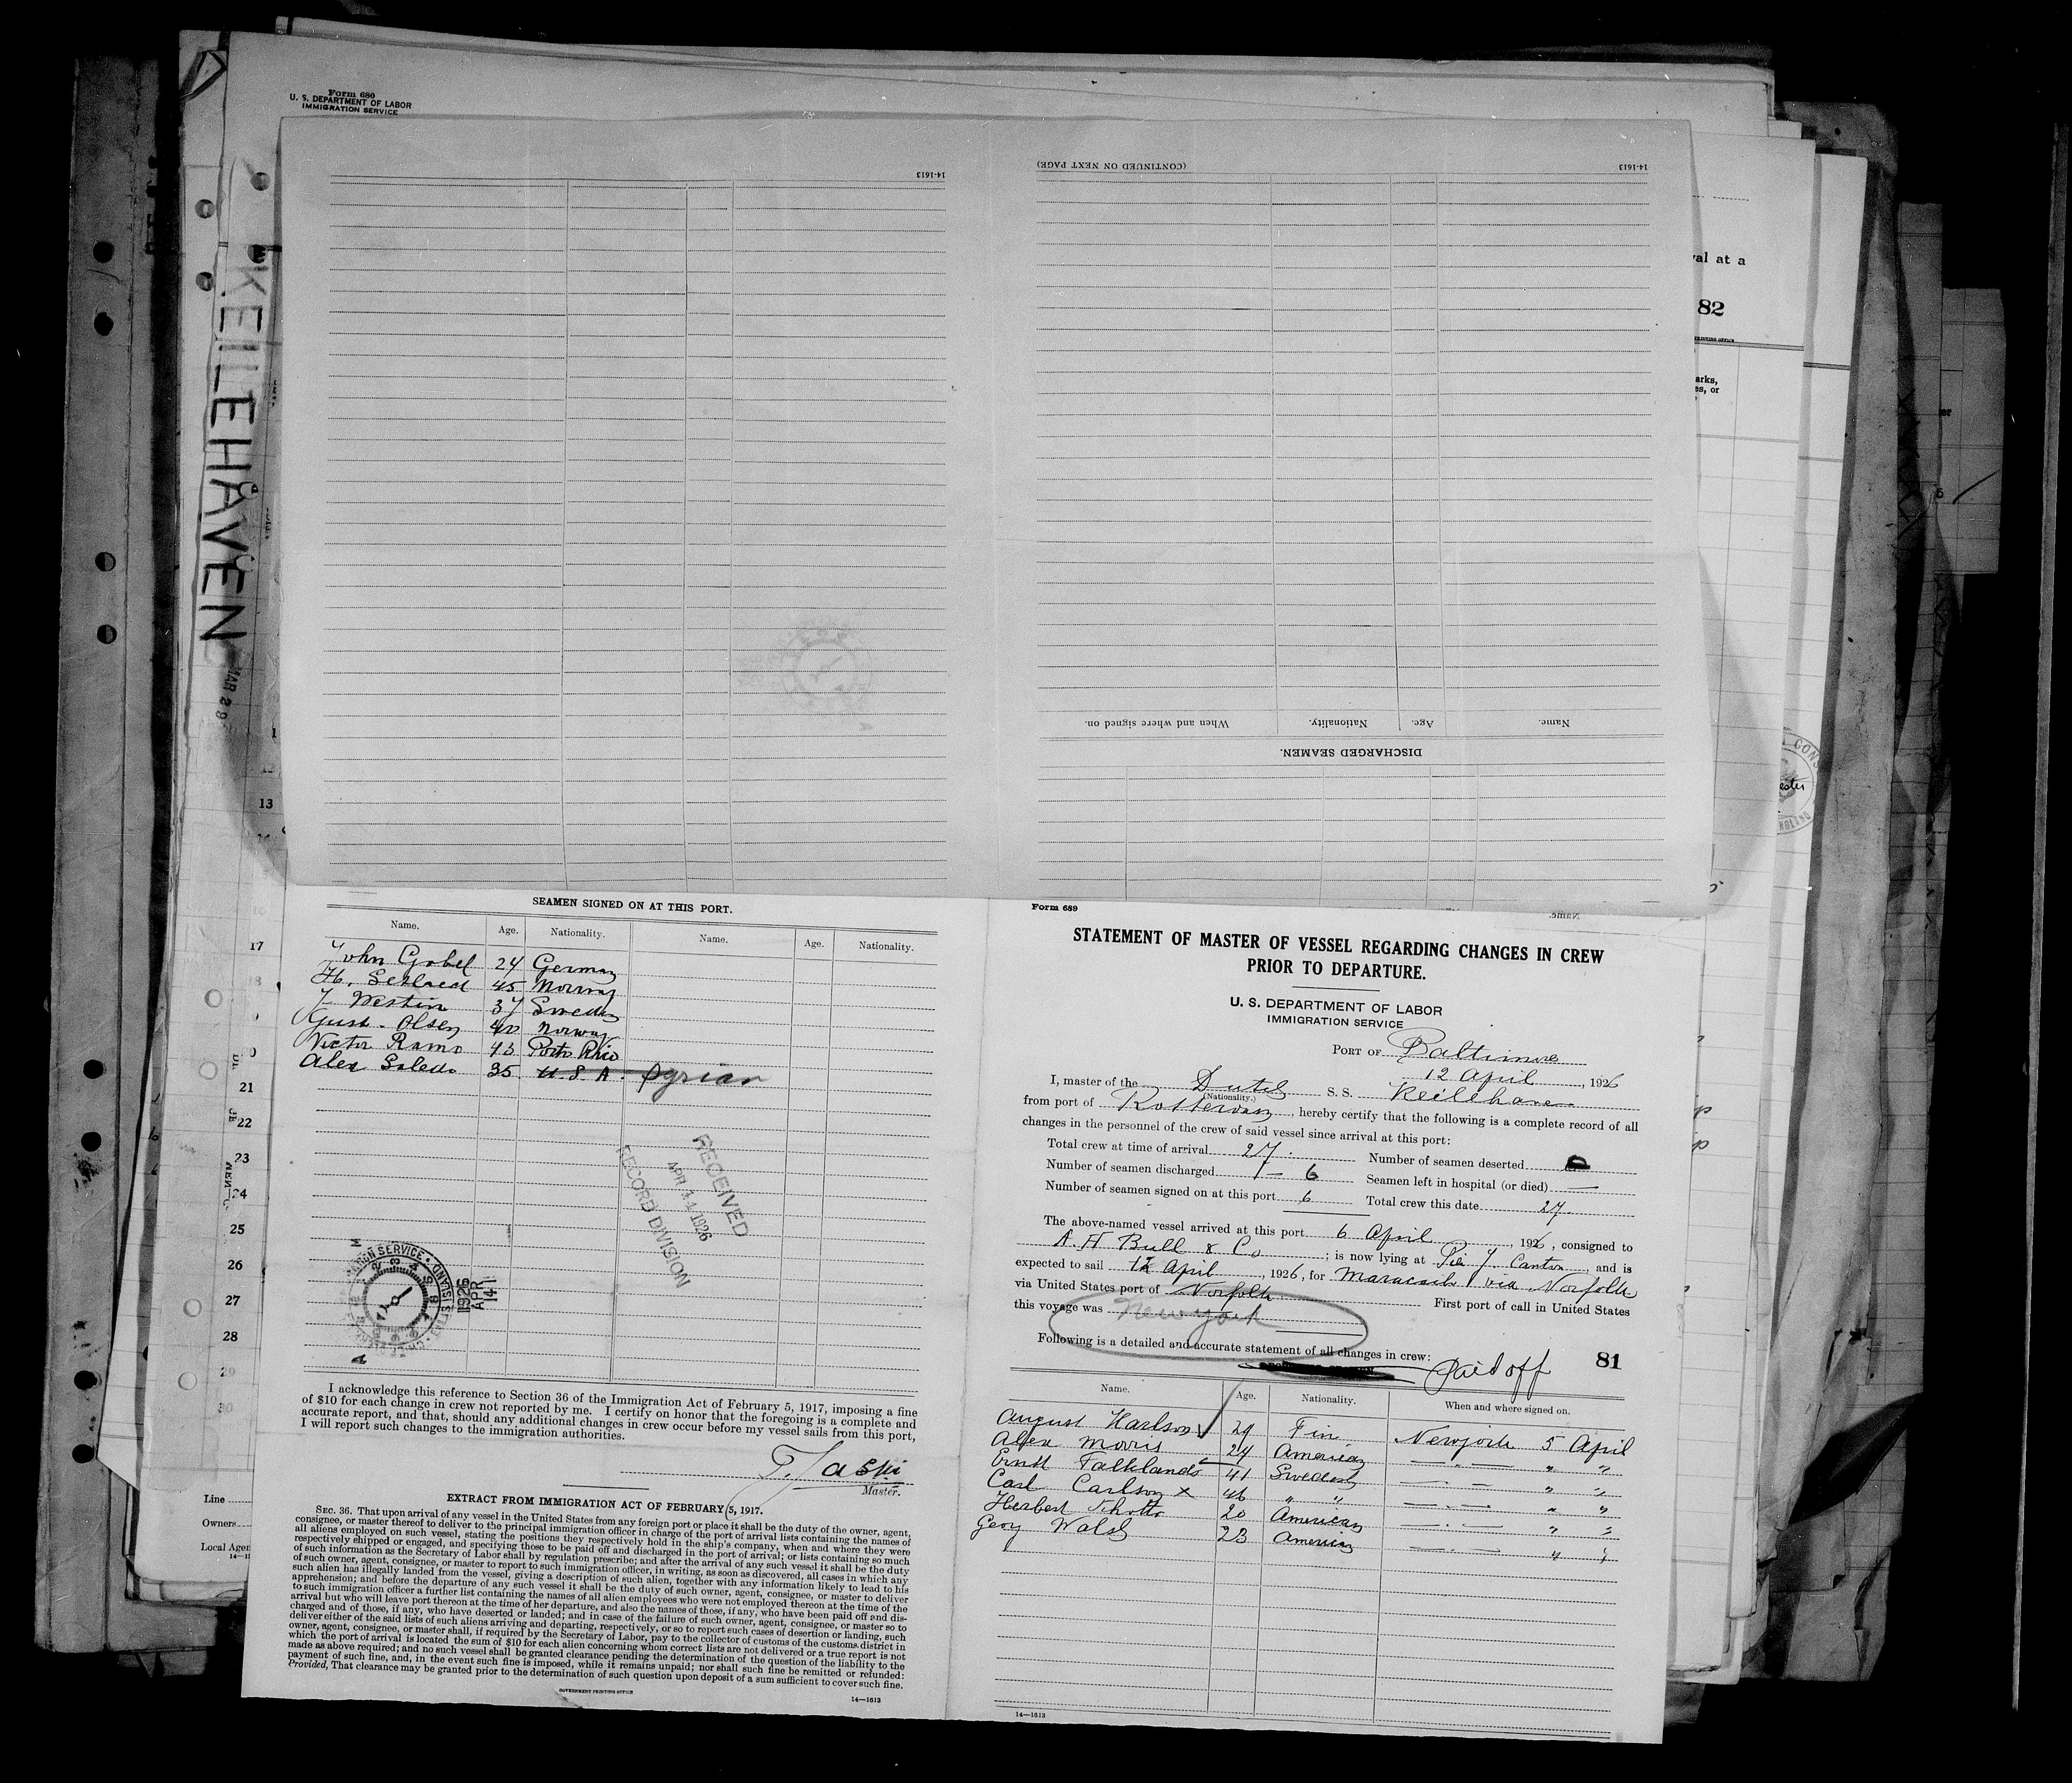 Form 680
U. S. DEPARTMENT OF LABOR
IMMIGRATION SERVICE
14-1613
(CONTINUED ON NEXT PAGE)
14-1613
val at a
82
arks,
es, or
KEILEHAVEN
MAR 29
Name.
Age.
Nationality.
When and where signed on.
DISCHARGED SEAMEN.
Name.
13
17
21
22
23
24
25
26
27
28
29
30
Line
Owners
Local Agen
SEAMEN SIGNED ON AT THIS PORT.
Name. Age. Nationality. Name. Age. Nationality.
John Gobel 24 German
H. 45 Norway
Westin 37 Sweden
Gust. Olsen 40 Norway
Victor Ramo 43 Porto Rico
Alex Saleeb 35 U.S.A. Syrian
RECEIVED
APR 14 1926
RECORD DIVISION
1926
APR
14
I acknowledge this reference to Section 36 of the Immigration Act of February 5, 1917, imposing a fine
of $10 for each change in crew not reported by me. I certify on honor that the foregoing is a complete and
accurate report, and that, should any additional changes in crew occur before my vessel sails from this port,
I will report such changes to the immigration authorities.
Master.
EXTRACT FROM IMMIGRATION ACT OF FEBRUARY 5, 1917.
SEC. 36. That upon arrival of any vessel in the United States from any foreign port or place it shall be the duty of the owner, agent,
consignee, or master thereof to deliver to the principal immigration officer in charge of the port of arrival lists containing the names of
all aliens employed on such vessel, stating the positions they respectively hold in the ship's company, when and where they were
respectively shipped or engaged, and specifying those to be paid off and discharged in the port of arrival; or lists containing so much
of such information as the Secretary of Labor shall by regulation prescribe; and after the arrival of any such vessel it shall be the duty
of such owner, agent, consignee, or master to report to such immigration officer, in writing, as soon as discovered, all cases in which any
such alien has illegally landed from the vessel, giving a description of such alien, together with any information likely to lead to his
apprehension; and before the departure of any such vessel it shall be the duty of such owner, agent, consignee, or master to deliver
to such immigration officer a further list containing the names of all alien employees who were not employed thereon at the time of the
arrival but who will leave port thereon at the time of her departure, and also the names of those, if any, who have been paid off and dis-
charged and of those, if any, who have deserted or landed; and in case of the failure of such owner, agent, consignee, or master so to
deliver either of the said lists of such aliens arriving and departing, respectively, or so to report such cases of desertion or landing, such
owner, agent, consignee, or master shall, if required by the Secretary of Labor, pay to the collector of customs of the customs district in
which the port of arrival is located the sum of $10 for each alien concerning whom correct lists are not delivered or a true report is not
made as above required; and no such vessel shall be granted clearance pending the determination of the question of the liability to the
payment of such fine, and, in the event such fine is imposed, while it remains unpaid; nor shall such fine be remitted or refunded:
Provided, That clearance may be granted prior to the determination of such question upon deposit of a sum sufficient to cover such fine.
GOVERNMENT PRINTING OFFICE
14—1613
Form 689
STATEMENT OF MASTER OF VESSEL REGARDING CHANGES IN CREW
PRIOR TO DEPARTURE.
U. S. DEPARTMENT OF LABOR
IMMIGRATION SERVICE
PORT OF Baltimore
12 April, 1926
I, master of the Dutch S. S. Keilehaven
(Nationality.)
from port of Rotterdam, hereby certify that the following is a complete record of all
changes in the personnel of the crew of said vessel since arrival at this port:
Total crew at time of arrival 27. Number of seamen deserted
Number of seamen discharged 6 Seamen left in hospital (or died) —
Number of seamen signed on at this port 6 Total crew this date 27.
The above-named vessel arrived at this port 6 April, 1926, consigned to
A. H Bull & Co; is now lying at Pier 7 Canton, and is
expected to sail 12 April, 1926, for Maracaibo via Norfolk
via United States port of Norfolk First port of call in United States
this voyage was New York
Following is a detailed and accurate statement of all changes in crew:
Paid off
81
Name. Age. Nationality. When and where signed on.
August Karlson 29 Fin Newyork 5 April
Alex Morris 24 American — " — " "
Ernst Falklands 41 Swedish — " — " "
Carl Carlson x 46 " " — " — " "
Herbert 20 American — " — " "
Georg Walsh 23 American — " — " "
14—1613